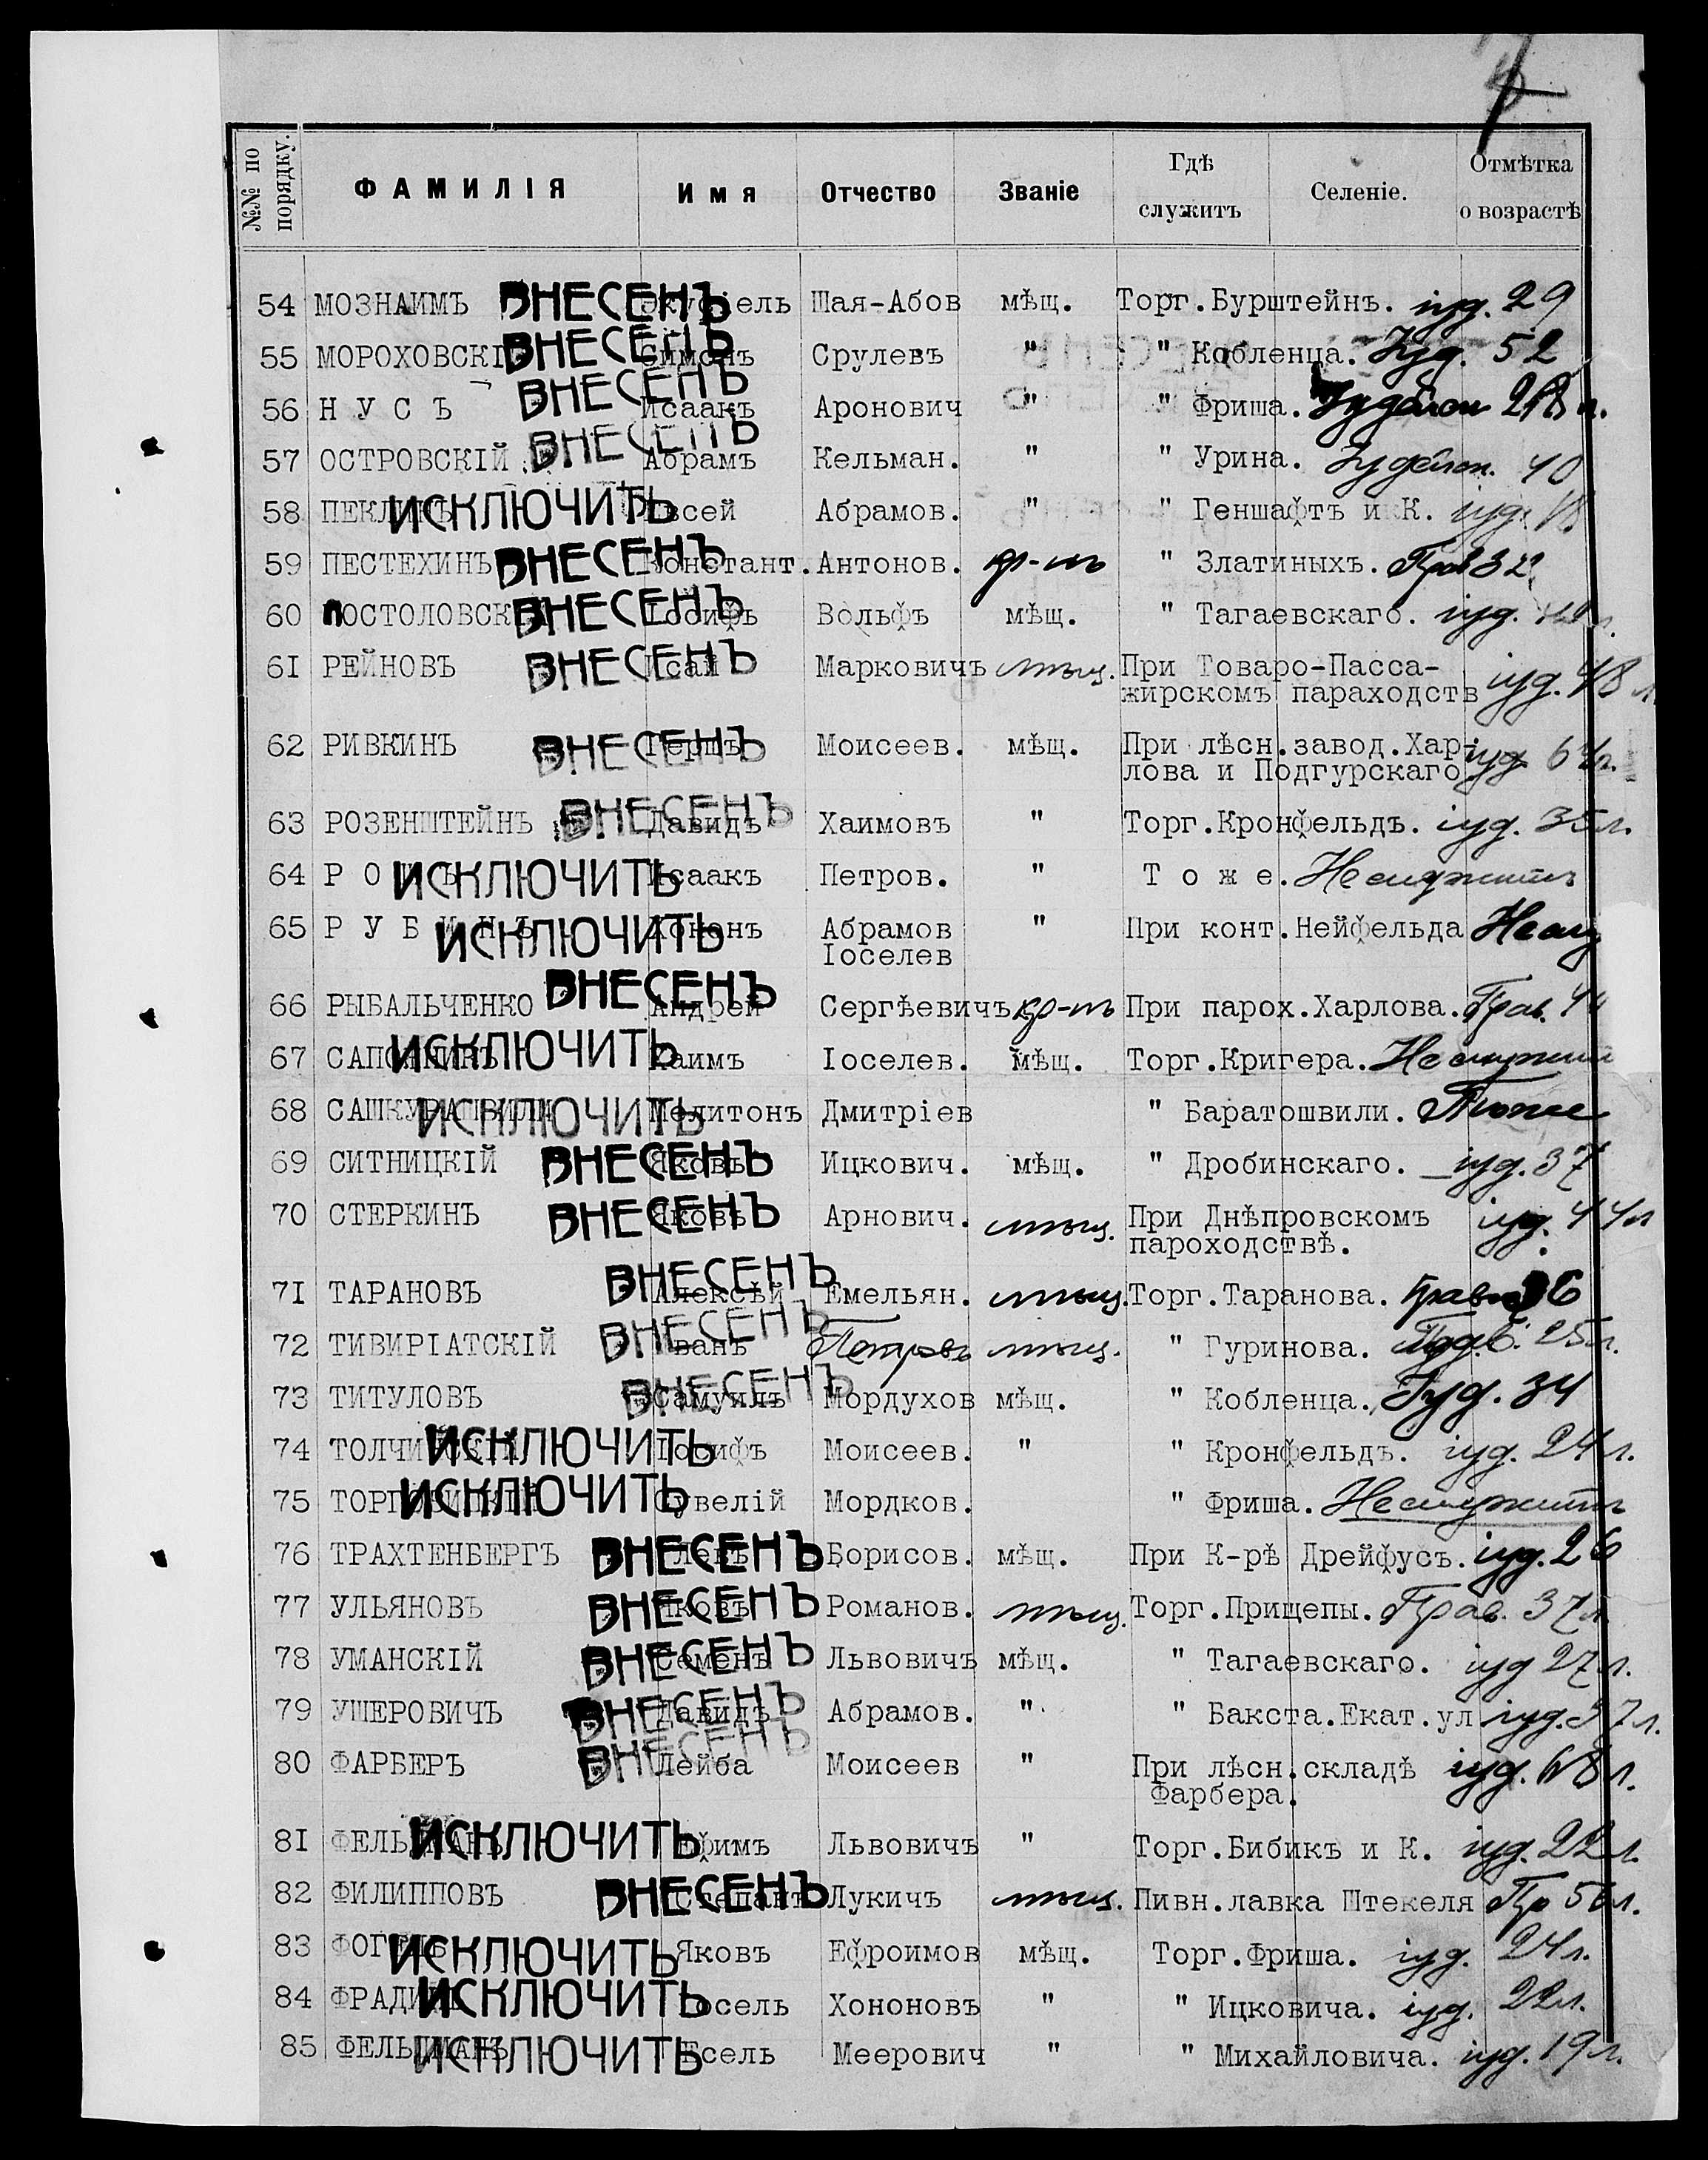 №№ по порядку. ФАМИЛІЯ Имя Отчество Званіе Гдѣ служитъ Селеніе. Отмѣтка о возрастѣ
54 МОЗНАИМЪ ВНЕСЕНЪ Шая-Абов мѣщ. Торг.Бурштейнъ. іуд. 29
55 МОРОХОВСКІ ВНЕСЕНЪ Симонъ Срулевъ " " Кобленца. Іуд. 52
56 НУСЪ ВНЕСЕНЪ Исаакъ Аронович " " Фриша.
57 ОСТРОВСКІЙ. ВНЕСЕНЪ Абрамъ Кельман. " " Урина. 40
58 ИСКЛЮЧИТЬ Евсей Абрамов. " " Геншафтъ и К. іуд.
59 ПЕСТЕХИНЪ ВНЕСЕНЪ Констант. Антонов. кр-нъ " Златиныхъ. Прав 32
60 ПОСТОЛОВСКІЙ ВНЕСЕНЪ Іосифъ Вольфъ мѣщ. " Тагаевскаго. іуд.
61 РЕЙНОВЪ ВНЕСЕНЪ Исай Марковичъ мѣщ. При Товаро-Пасса-
жирскомъ параходств іуд. 48 л.
62 РИВКИНЪ ВНЕСЕНЪ Гершъ Моисеев. мѣщ. При лѣсн.завод.Хар-
лова и Подгурскаго іуд 64л.
63 РОЗЕНШТЕЙНЪ ВНЕСЕНЪ Давидъ Хаимовъ " Торг.Кронфельдъ. іуд. 35л.
64 ИСКЛЮЧИТЬ Исаакъ Петров. " Тоже. Не служитъ
65 РУБИНЪ ИСКЛЮЧИТЬ Хононъ Абрамов " При конт.Нейфельда Не слу
Іоселев
66 РЫБАЛЬЧЕНКО ВНЕСЕНЪ Андрей Сергѣевичъ кр-нъ При парох.Харлова. Прав. 44
67 ИСКЛЮЧИТЬ Хаимъ Іоселев. мѣщ. Торг.Кригера. Не служитъ
68 ИСКЛЮЧИТЬ Мелитонъ Дмитріев " Баратошвили. Тоже
69 СИТНИЦКІЙ ВНЕСЕНЪ Яковъ Ицкович. мѣщ. " Дробинскаго. іуд. 37
70 СТЕРКИНЪ ВНЕСЕНЪ Яковъ Арнович. мѣщ. При Днѣпровскомъ іуд. 44л
пароходствѣ.
71 ТАРАНОВЪ ВНЕСЕНЪ Алексѣй Емельян. мѣщ. Торг.Таранова. Прав 36
72 ТИВИРІАТСКІЙ ВНЕСЕНЪ Иванъ Петровъ мѣщ. " Гуринова. 25л.
73 ТИТУЛОВЪ ВНЕСЕНЪ Самуилъ Мордухов мѣщ. " Кобленца. Іуд. 34
74 ИСКЛЮЧИТЬ Іосифъ Моисеев. " " Кронфельдъ. іуд. 24л.
75 ИСКЛЮЧИТЬ Сувелій Мордков. " Фриша. Не служитъ
76 ТРАХТЕНБЕРГЪ ВНЕСЕНЪ Левъ Борисов. мѣщ. При К-рѣ Дрейфусъ. іуд. 26
77 УЛЬЯНОВЪ ВНЕСЕНЪ Яковъ Романов. мѣщ. Торг.Прищепы. Прав. 37л
78 УМАНСКІЙ ВНЕСЕНЪ Семенъ Львовичъ мѣщ. " Тагаевскаго. іуд 27л.
79 УШЕРОВИЧЪ ВНЕСЕНЪ Давидъ Абрамов. " " Бакста.Екат.ул іуд. 37л.
80 ФАРБЕРЪ ВНЕСЕНЪ Лейба Моисеев " При лѣсн.складѣ іуд. 68л.
Фарбера.
81 ФЕЛЬДМАНЪ ИСКЛЮЧИТЬ Ефимъ Львовичъ " Торг.Бибикъ и К. іуд. 22л.
82 ФИЛИППОВЪ ВНЕСЕНЪ Степанъ Лукичъ мѣщ. Пивн.лавка Штекеля Пр 56л.
83 ФОГЕЛЬ ИСКЛЮЧИТЬ Яковъ Ефроимов мѣщ. Торг.Фриша. іуд. 24л.
84 ИСКЛЮЧИТЬ Іосель Хононовъ " " Ицковича. іуд. 22л.
85 ФЕЛЬДМАНЪ ИСКЛЮЧИТЬ Есель Меерович " " Михайловича. іуд. 19л.